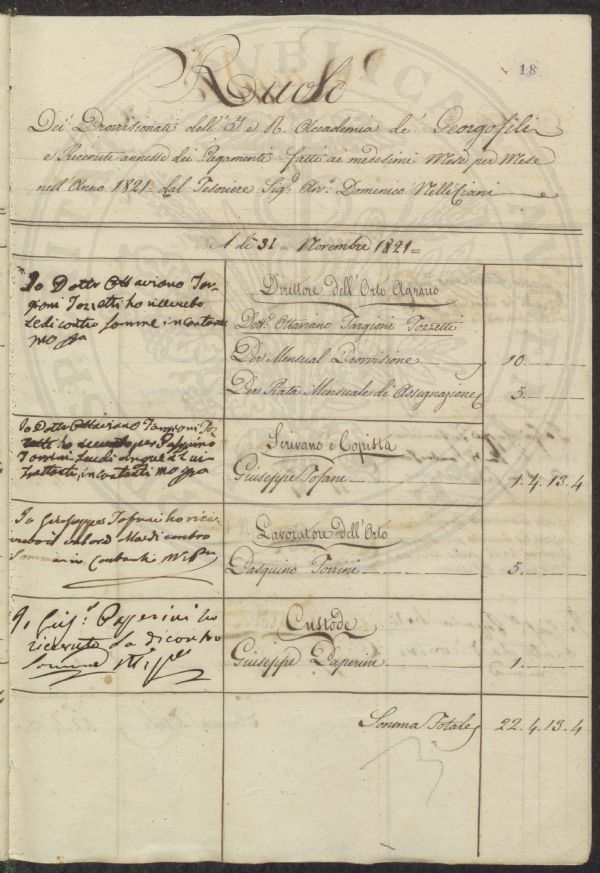 18
Ruolo
Dei Provvisionati dell' I. e R. Accademia de' Georgofili
e Ricevute annesse dei Pagamenti fatti ai medesimi Mese per Mese
nell' Anno 1821 dal Tesoriere Sig.e Av.o Domenico
A dì 31 Novembre 1821
Io Dottr Ottaviano Tar-
gioni Tozzetti ho ricevuto
le di contro somme in contanti
mo pa
Direttore dell' Orto Agrario
Dott.e Ottaviano Targioni Tozzetti
Per Mensual Provvisione 10.
Per Rata Mensuale di Assegnazione 5.
Io Dottr Ottaviano Targioni Toz-
zetti ho ricevuto per Pasquino
Torrini Lire cinque a lui
in contanti mo pa
Scrivano e Copista
Giuseppe Tofani 1. 4. 13. 4
Io Giuseppe Tofani ho rice-
di contro
Contanti
Lavoratore dell' Orto
Pasquino Torrini 5.
Io Giu.e Paperini ho
ricevuto La di contro
Somma
Custode
Giuseppe Paperini 1.
Somma Totale 22. 4. 13. 4